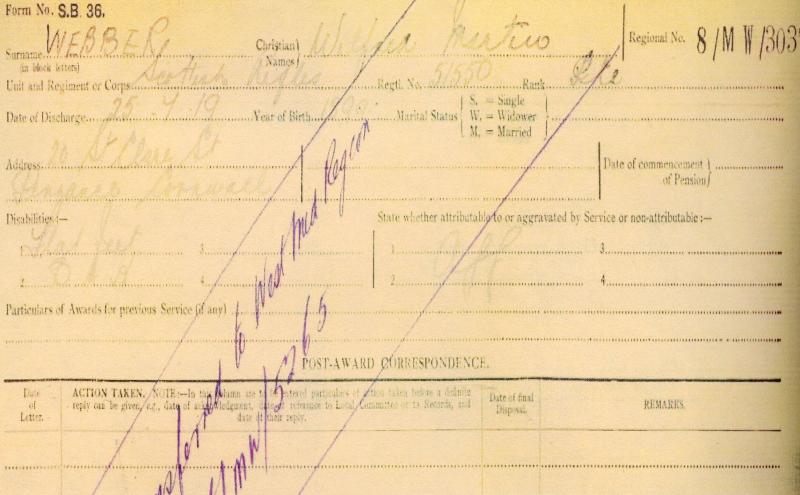 Form No. S.B. 36.
Surname WEBBER Christian Names Wilfred Regional No. 8/MW/303
(in block letters)
Unit and Regiment or Corps Scottish Rifles Regtl. No. 51550 Rank Pte
Date of Discharge 25 . 4 . 19 Year of Birth Marital Status S. = Single
W. = Widower
M. = Married
Address 20 St Clare St
Penzance Cornwall
Date of commencement of Pension
Disabilities:—
State whether attributable to or aggravated by Service or non-attributable:—
1 Flat feet 3 1 3
2 D A H 4 2 4
Particulars of Awards for previous Service (if any)
to West Mid Region
/5265
POST-AWARD CORRESPONDENCE.
Date of Letter.
ACTION TAKEN. NOTE:—In this column are to be entered particulars of action taken before a definite
reply can be given, e.g., date of acknowledgment, date of reference to Local Committee or to Records, and
date of their reply.
Date of final Disposal.
REMARKS.